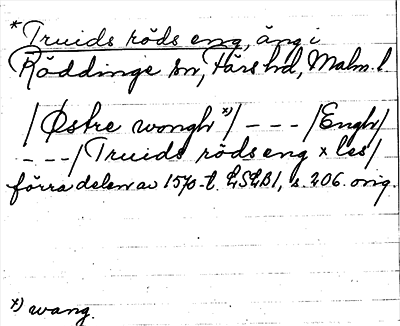 * Truids röds eng, äng i
Röddinge sn, Färs hd, Malm. l.
/Østre wongh x)/ - - - /Engh/
- - -/Truids röds eng x les/
förra delen av 1570-t. LSLB1, s. 206. orig.
x) wang.